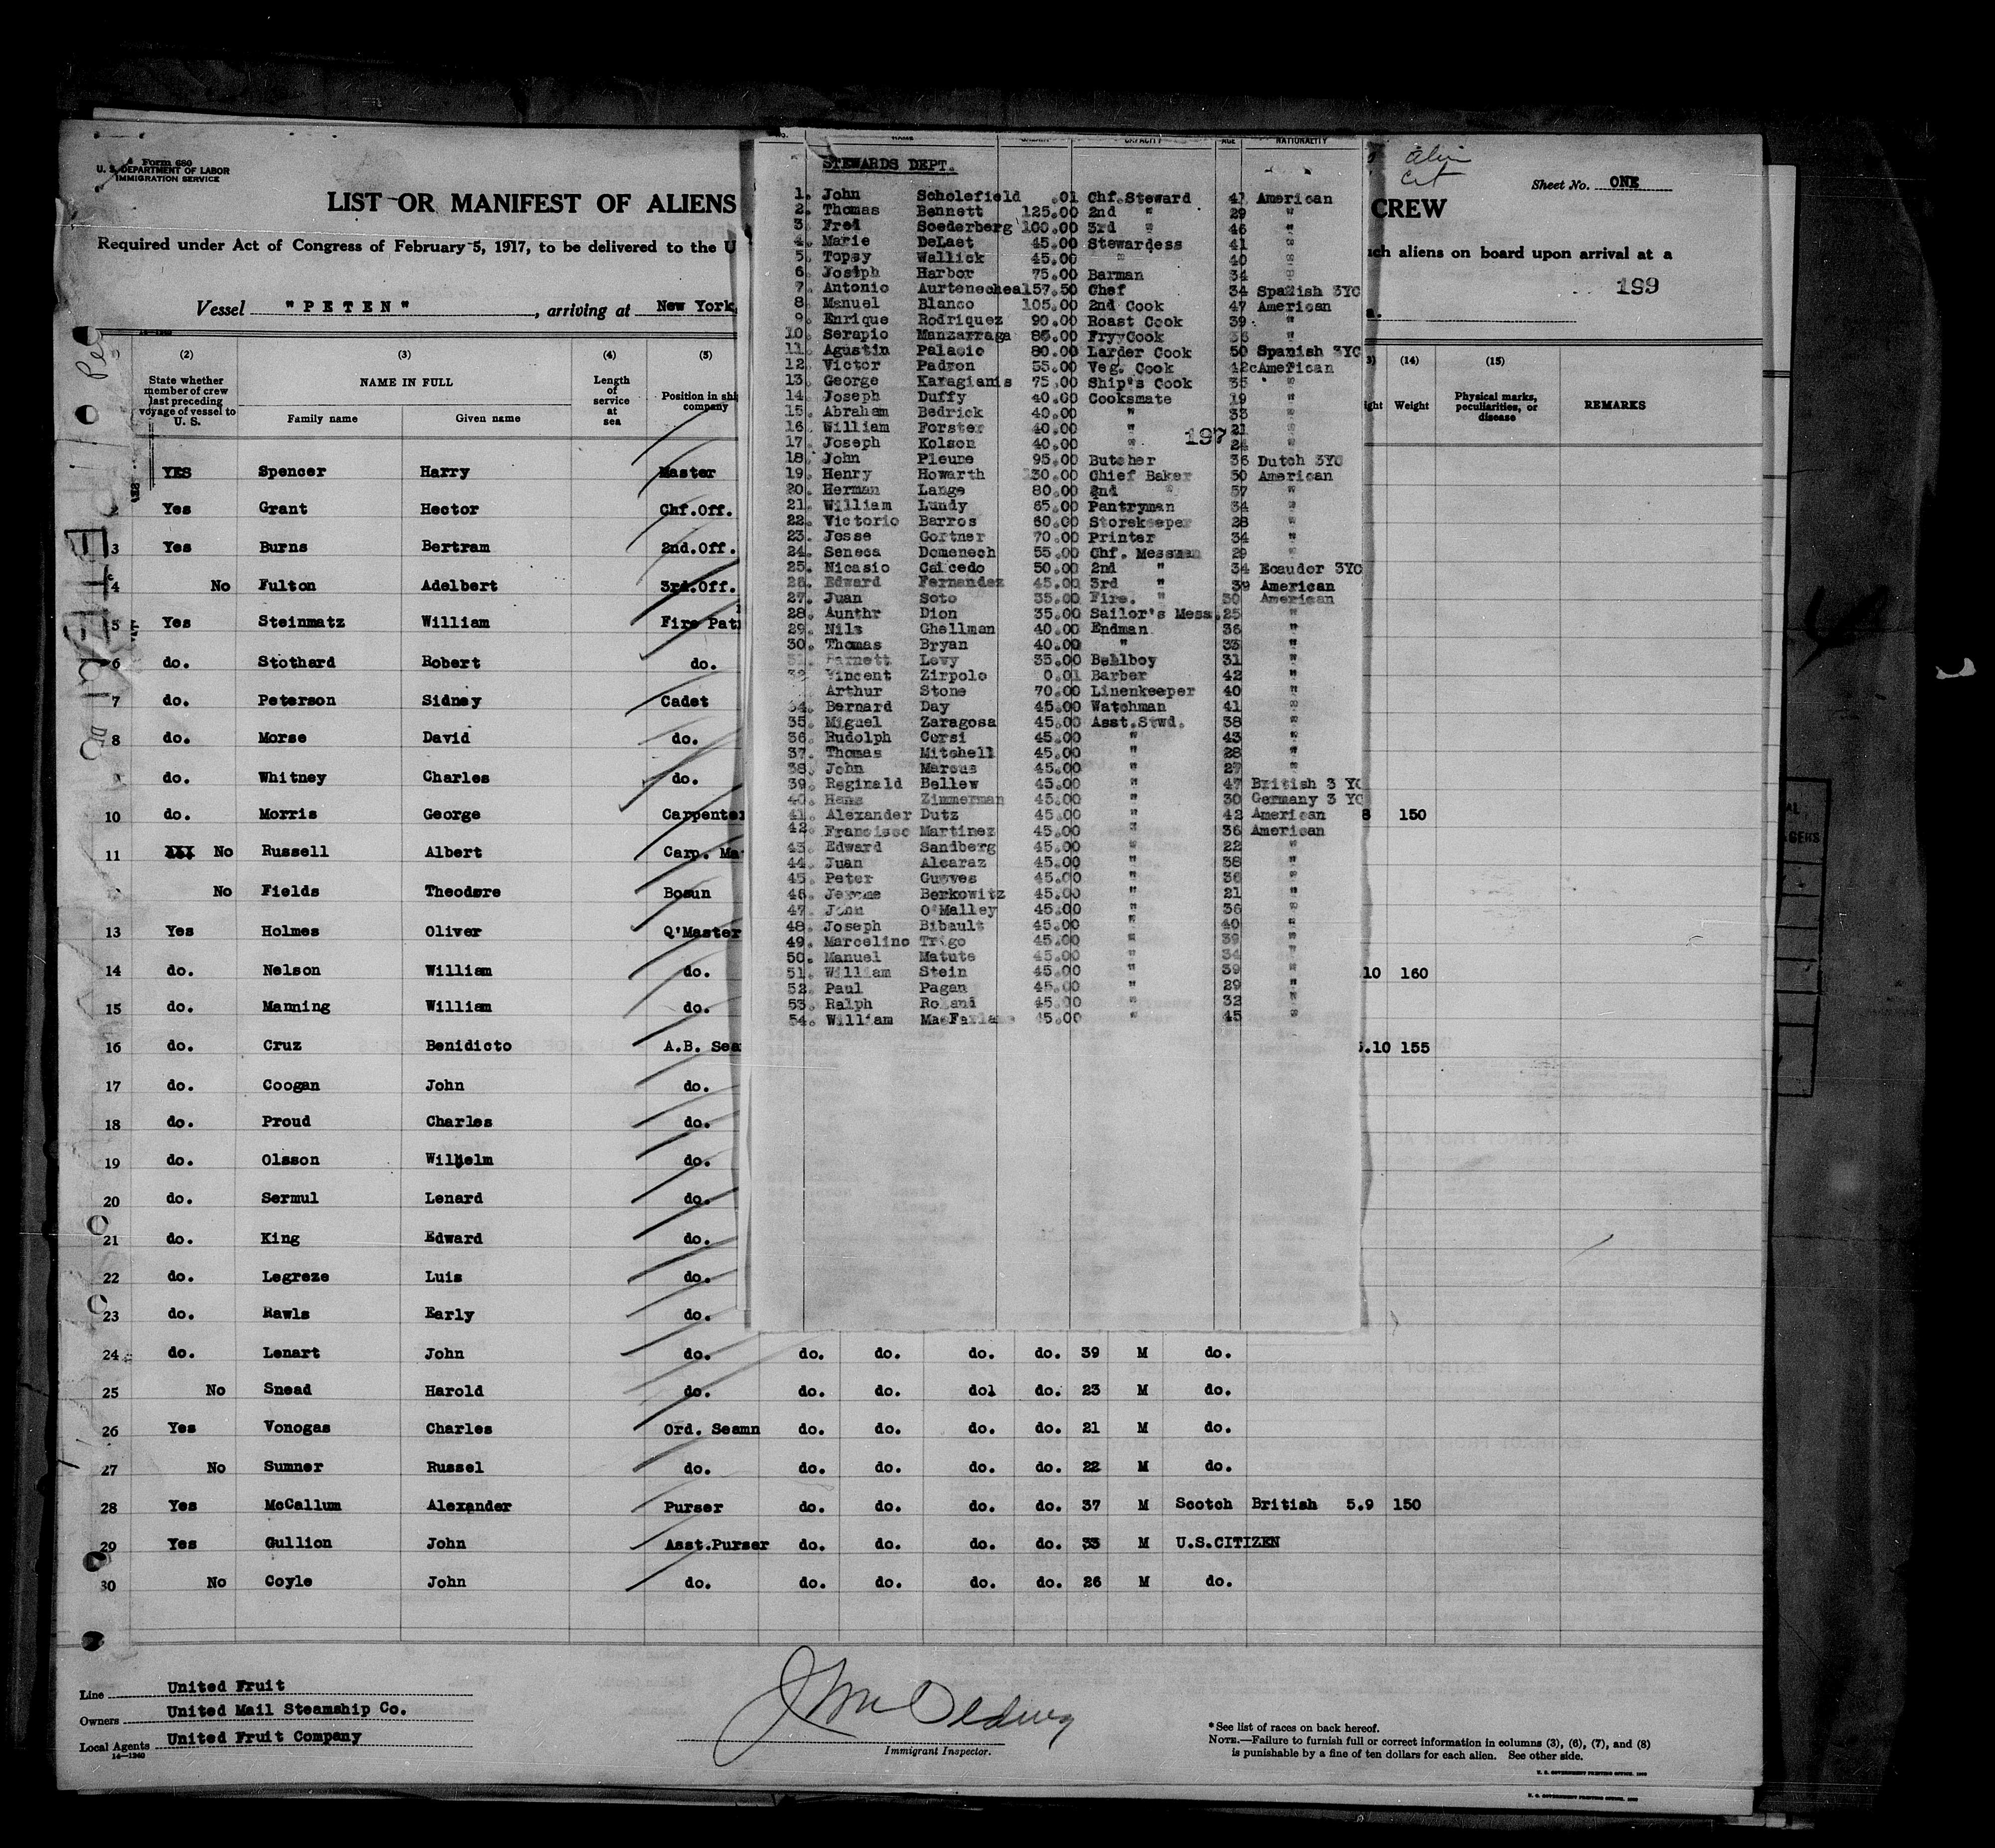 Form 680
U. S. DEPARTMENT OF LABOR
IMMIGRATION SERVICE
LIST OR MANIFEST OF ALIENS
CREW
Sheet No. ONE
Required under Act of Congress of February 5, 1917, to be delivered to the U
ch aliens on board upon arrival at a
199
Vessel "PETEN", arriving at New York
(2) (3) (4) (5)
State whether member of crew last preceding voyage of vessel to U. S.
NAME IN FULL
Family name Given name
Length of service at sea
Position in ship company
(14) (15)
Weight
Physical marks, peculiarities, or disease
REMARKS
YES Spencer Harry Master
2 Yes Grant Hector Chf.Off.
3 Yes Burns Bertram 2nd.Off.
4 No Fulton Adelbert 3rd.Off.
5 Yes Steinmatz William Fire Pat
6 do. Stothard Robert do.
7 do. Peterson Sidney Cadet
8 do. Morse David do.
do. Whitney Charles do.
10 do. Morris George Carpenter 8 150
11 No Russell Albert Carp. Ma
No Fields Theodore Bosun
13 Yes Holmes Oliver Q'Master
14 do. Nelson William do. 10 160
15 do. Manning William do.
16 do. Cruz Benidicto A.B. Sea 5.10 155
17 do. Coogan John do.
18 do. Proud Charles do.
19 do. Olsson Wilhelm do.
20 do. Sermul Lenard do.
21 do. King Edward do.
22 do. Legreze Luis do.
23 do. Rawls Early do.
24 do. Lenart John do. do. do. do. do. 39 M do.
25 No Snead Harold do. do. do. dol do. 23 M do.
26 Yes Vonogas Charles Ord. Seamn do. do. do. do. 21 M do.
27 No Sumner Russel do. do. do. do. do. 22 M do.
28 Yes McCallum Alexander Purser do. do. do. do. 37 M Scotch British 5.9 150
29 Yes Gullion John Asst.Purser do. do. do. do. 33 M U.S.CITIZEN
30 No Coyle John do. do. do. do. do. 26 M do.
NAME CAPACITY AGE NATIONALITY
STEWARDS DEPT.
1. John Scholefield .01 Chf.Steward 41 American
2. Thomas Bennett 125.00 2nd " 29 "
3. Fred Soederberg 100.00 3rd " 46 "
4. Marie DeLaet 45.00 Stewardess 41 "
5. Topsy Wallick 45.00 " 40 "
6. Joseph Harbor 75.00 Barman 34 "
7. Antonio Aurtenechea 157.50 Chef 34 Spanish 3YC
8. Manuel Blanco 105.00 2nd Cook 47 American
9. Enrique Rodriquez 90.00 Roast Cook 39 "
10. Serapio Manzarraga 85.00 Fry Cook "
11. Agustin Palacio 80.00 Larder Cook 50 Spanish 3YC
12. Victor Padron 55.00 Veg. Cook American
13. George Karagianis 75.00 Ship's Cook 35 "
14. Joseph Duffy 40.00 Cooksmate 19 "
15. Abraham Bedrick 40.00 " 33 "
16. William Forster 40.00 " 21 "
197
17. Joseph Kolson 40.00 " 24 "
18. John Pleune 95.00 Butcher 36 Dutch 3YC
19. Henry Howarth 130.00 Chief Baker 50 American
20. Herman Lange 80.00 2nd " 57 "
21. William Lundy 65.00 Pantryman 34 "
22. Victorio Barros 60.00 Storekeeper 28 "
23. Jesse Gortner 70.00 Printer 34 "
24. Seneca Domenech 55.00 Chf. Messman 29 "
25. Nicasio Caicedo 50.00 2nd " 34 Ecaudor 3YC
26. Edward Fernandez 45.00 3rd " 39 American
27. Juan Soto 35.00 Fire. " 30 American
28. Aunthr Dion 35.00 Sailor's Mess. 25 "
29. Nils Ghellman 40.00 Endman 36 "
30. Thomas Bryan 40.00 " 33 "
31. Barnett Levy 35.00 Bellboy 31 "
32 Vincent Zirpolo 0.01 Barber 42 "
Arthur Stone 70.00 Linenkeeper 40 "
34. Bernard Day 45.00 Watchman 41 "
35. Miguel Zaragosa 45.00 Asst.Stwd. 38 "
36. Rudolph Corsi 45.00 " 43 "
37. Thomas Mitchell 45.00 " 28 "
38. John Marcus 45.00 " 27 "
39. Reginald Bellew 45.00 " 47 British 3 YC
40. Hans Zimmerman 45.00 " 30 Germany 3 YC
41. Alexander Dutz 45.00 " 42 American
42. Francisco Martinez 45.00 " 36 American
43. Edward Sandberg 45.00 " 22 "
44. Juan Alcaraz 45.00 " 38 "
45. Peter 45.00 " 36 "
46. Jerome Berkowitz 45.00 " 21 "
47. John O'Malley 45.00 " 36 "
48. Joseph Bibault 45.00 " 40 "
49. Marcelino Trigo 45.00 " 39 "
50. Manuel Matute 45.00 " 34 "
51. William Stein 45.00 " 39 "
52. Paul Pagan 45.00 " 29 "
53. Ralph Roland 45.00 " 32 "
54. William MacFarlane 45.00 " 45 "
Line United Fruit
Owners United Mail Steamship Co.
Local Agents United Fruit Company
14—1240
Immigrant Inspector.
*See list of races on back hereof.
NOTE.—Failure to furnish full or correct information in columns (3), (6), (7), and (8)
is punishable by a fine of ten dollars for each alien. See other side.